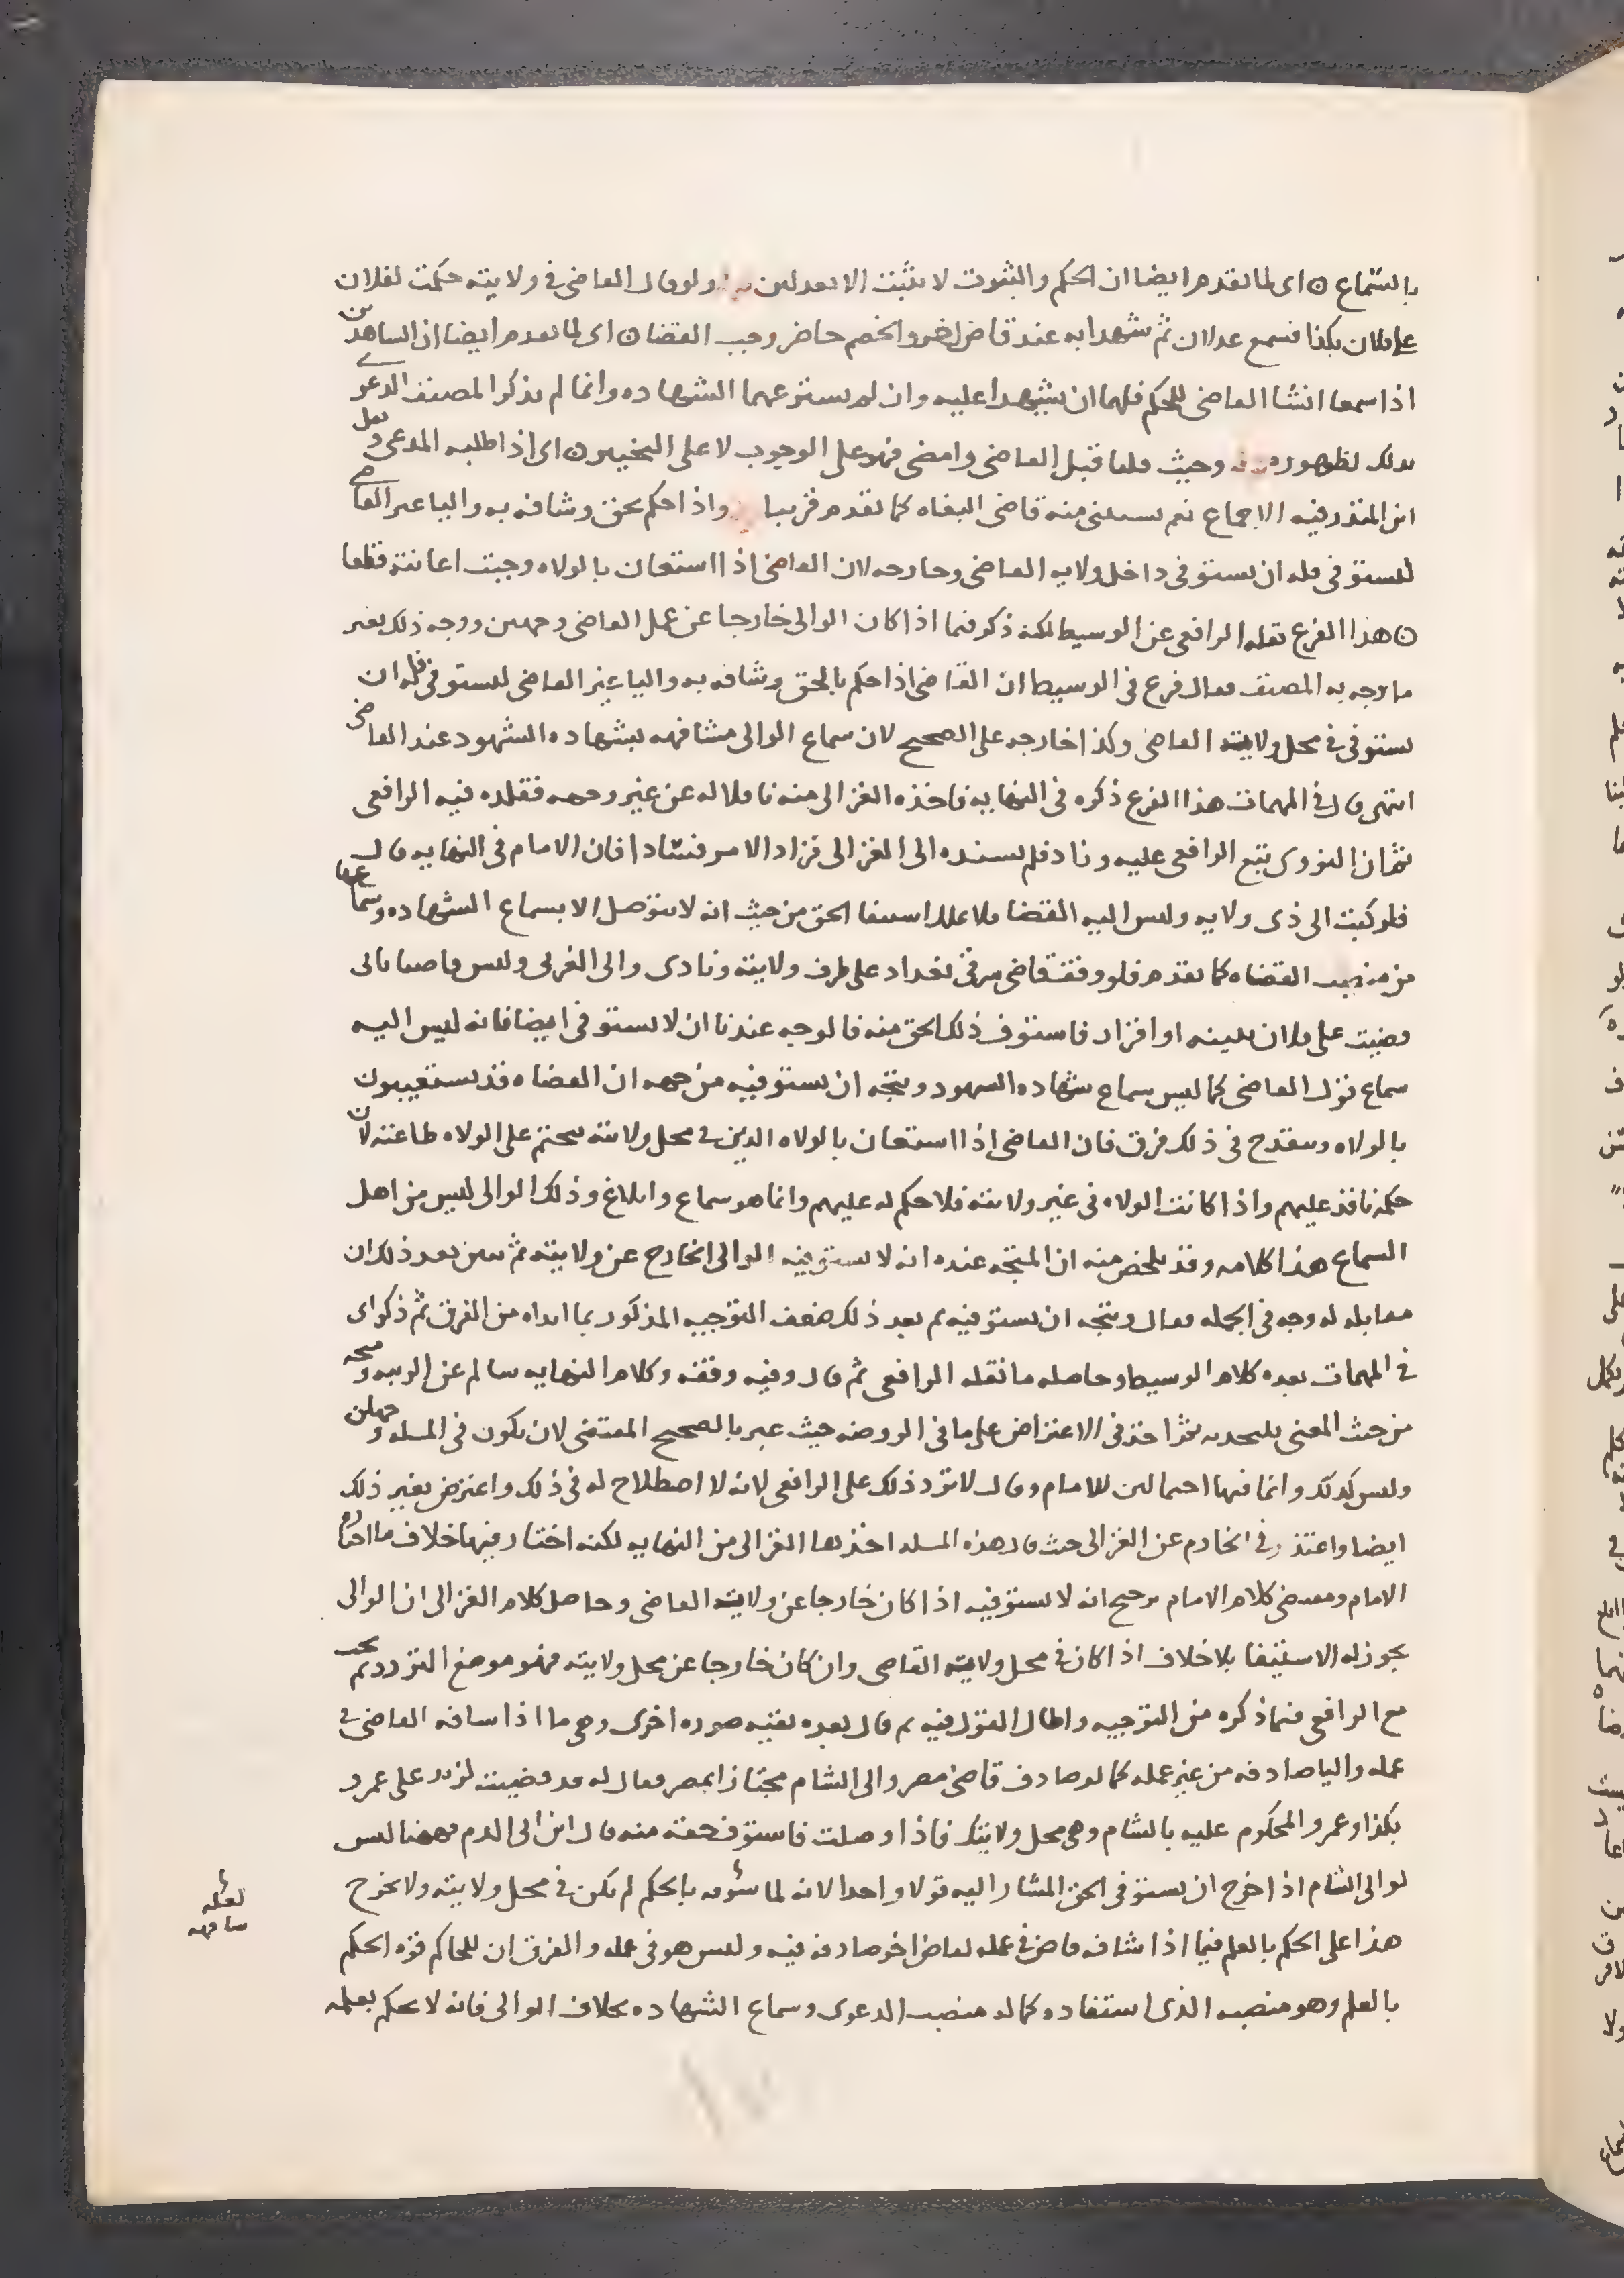 بالسماع ن اى لما تقدم ايضا ان الحكم والثبوت لا يثبت الا بعدلين ولو قال القاضى فى ولايته حكمت لفلان
على فلان بكذا فسمع عدلان ثم شهدا به عند قاض اخر والخصم حاضر وجب القضا ن اى لما تقدم ايضا ان الشاهدين
اذا سمعا انشا القاضى للحكم فلهما ان يشهدا عليه وان لم يسترعهما الشهاده وانما لم يذكر المصنف الدعوى
بذلك لظهوره وحيث قلنا قبل القاضى وامضى فهو على الوجوب لا على التخيير ن اى اذا طلبه المدعى ونقل
ابن المنذر فيه الاجماع نعم يستثنى منه قاضى البغاه كما تقدم قريبا واذا حكم بحق وشافه به واليا غير القاضى
ليستوفى فله ان يستوفى داخل ولايه القاضى وخارجه لان القاضى اذا استعان بالولاه وجبت اعانته قطعا
ن هذا الفرع نقله الرافعى عن الوسيط لكنه ذكر فيما اذا كان الوالى خارجا عن عمل القاضى وجهين ووجه ذلك بغير
ما وجه به المصنف فقال فرع فى الوسيط ان القاضى اذا حكم بالحق وشافه به واليا غير القاضى ليستوفى فله ان
يستوفى فى محل ولايته القاضى وكذا خارجه على الصحيح لان سماع الوالى مشافهه كشهاده الشهود عند القاضى
انتهى قال فى المهمات هذا الفرع ذكره فى النهايه فاخذه الغزالى منه ناقلا له عن غير وجهه فقلده فيه الرافعى
ثم ان النووى تبع الرافعى عليه وزاد فلم يسنده الى الغزالى فزاد الامر فسادا فان الامام فى النهايه قال
فلو كتب الى ذى ولايه وليس اليه القضا فلا يملك استيفا الحق من حيث انه لا يتوصل الا بسماع الشهاده وسماعها
من منصب القضاه كما تقدم فلو وقف قاضى شرقى بغداد على طرف ولايته ونادى والى الغربى وليس قاضيا بانى
قضيت على فلان ببينه او اقرار فاستوف ذلك الحق منه فالوجه عندنا ان لا يستوفى ايضا فانه ليس اليه
سماع قول القاضى كما ليس سماع شهاده الشهود ويتجه ان يستوفيه من جهه ان القضاه قد يستعينون
بالولاه ويقدح فى ذلك فرق فان القاضى اذا استعان بالولاه الذين فى محل ولايته يتحتم على الولاه طاعته لان
حكمه نافذ عليهم واذا كانت الولاه فى غير ولايته فلا حكم له عليهم وانما هو سماع وابلاغ وذلك الوالى ليس من اهل
السماع هذا كلامه وقد يلخص منه ان المتجه عنده انه لا يستوفيه الوالى الخارج عن ولايته ثم بين بعد ذلك ان
مقابله له وجه فى الجمله فقال ويتجه ان يستوفيه ثم بعد ذلك ضعف التوجيه المذكور بما ابداه من الفرق ثم ذكر اى
فى المهمات بعده كلام الوسيط وحاصله ما نقله الرافعى ثم قال وفيه وقفه وكلام النهايه سالم عن الريبه
من حيث المعنى ثم اخذ فى الاعتراض على ما فى الروضه حيث عبر بالصحيح المقتضى لان يكون فى المسله وجهان
وليس كذلك وانما فيها احتمالين للامام وقال لا ترد ذلك على الرافعى لانه لا اصطلاح له فى ذلك واعترض بغير ذلك
ايضا واعتذر فى الخادم عن الغزالى حيث قال هذه المسله اخذها الغزالى من النهايه لكنه اختار فيها خلاف ما اختاره
الامام ومقتضى كلام الامام ترجيح انه لا يستوفيه اذا كان خارجا عن ولايته القاضى وحاصل كلام الغزالى ان الوالى
يجوز له الاستيفا بلا خلاف اذا كان فى محل ولايته القاضى وان كان خارجا عن محل ولايته فهو موضع التردد ثم بحث
مع الرافعى فيما ذكره من التوجيه واطال القول فيه ثم قال بعده بقيه صوره اخرى وهى ما اذا شافه القاضى فى
عمله واليا صادفه من غير عمله كما لو صادف قاضى مصر والى الشام مجتازا بمصر فقال له قد قضيت لزيد على عمرو
بكذا وعمرو المحكوم عليه بالشام وهى محل ولايتك فاذا وصلت فاستوف حقه منه قال ابن ابى الدم فههنا ليس
لوالى الشام اذا خرج ان يستوفى الحق المشار اليه قولا واحدا لانه لما شوفه بالحكم لم يكن فى محل ولايته ولا يخرج
هذا على الحكم بالعلم فيما اذا شافه قاض فى عمله لقاض اخر صادفه فيه وليس هو فى عمله والفرق ان للحاكم قوه الحكم
بالعلم وهو منصبه الذى استفاده كما له منصب الدعوى وسماع الشهاده بخلاف الوالى فانه لا يحكم بعلمه
لعله
شافهه